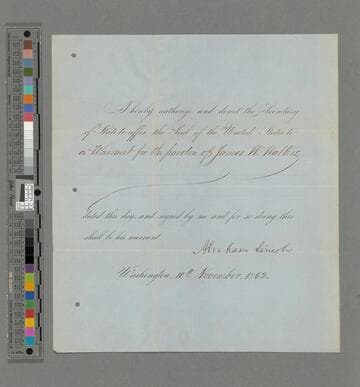 I hereby authorize and direct the Secretary
of State to affix the Seal of the United States to
a Warrant for the pardon of James W. Walters,
dated this day, and signed by me and for so doing this
shall be his warrant.
Abraham Lincoln
Washington, 10th November, 1862.